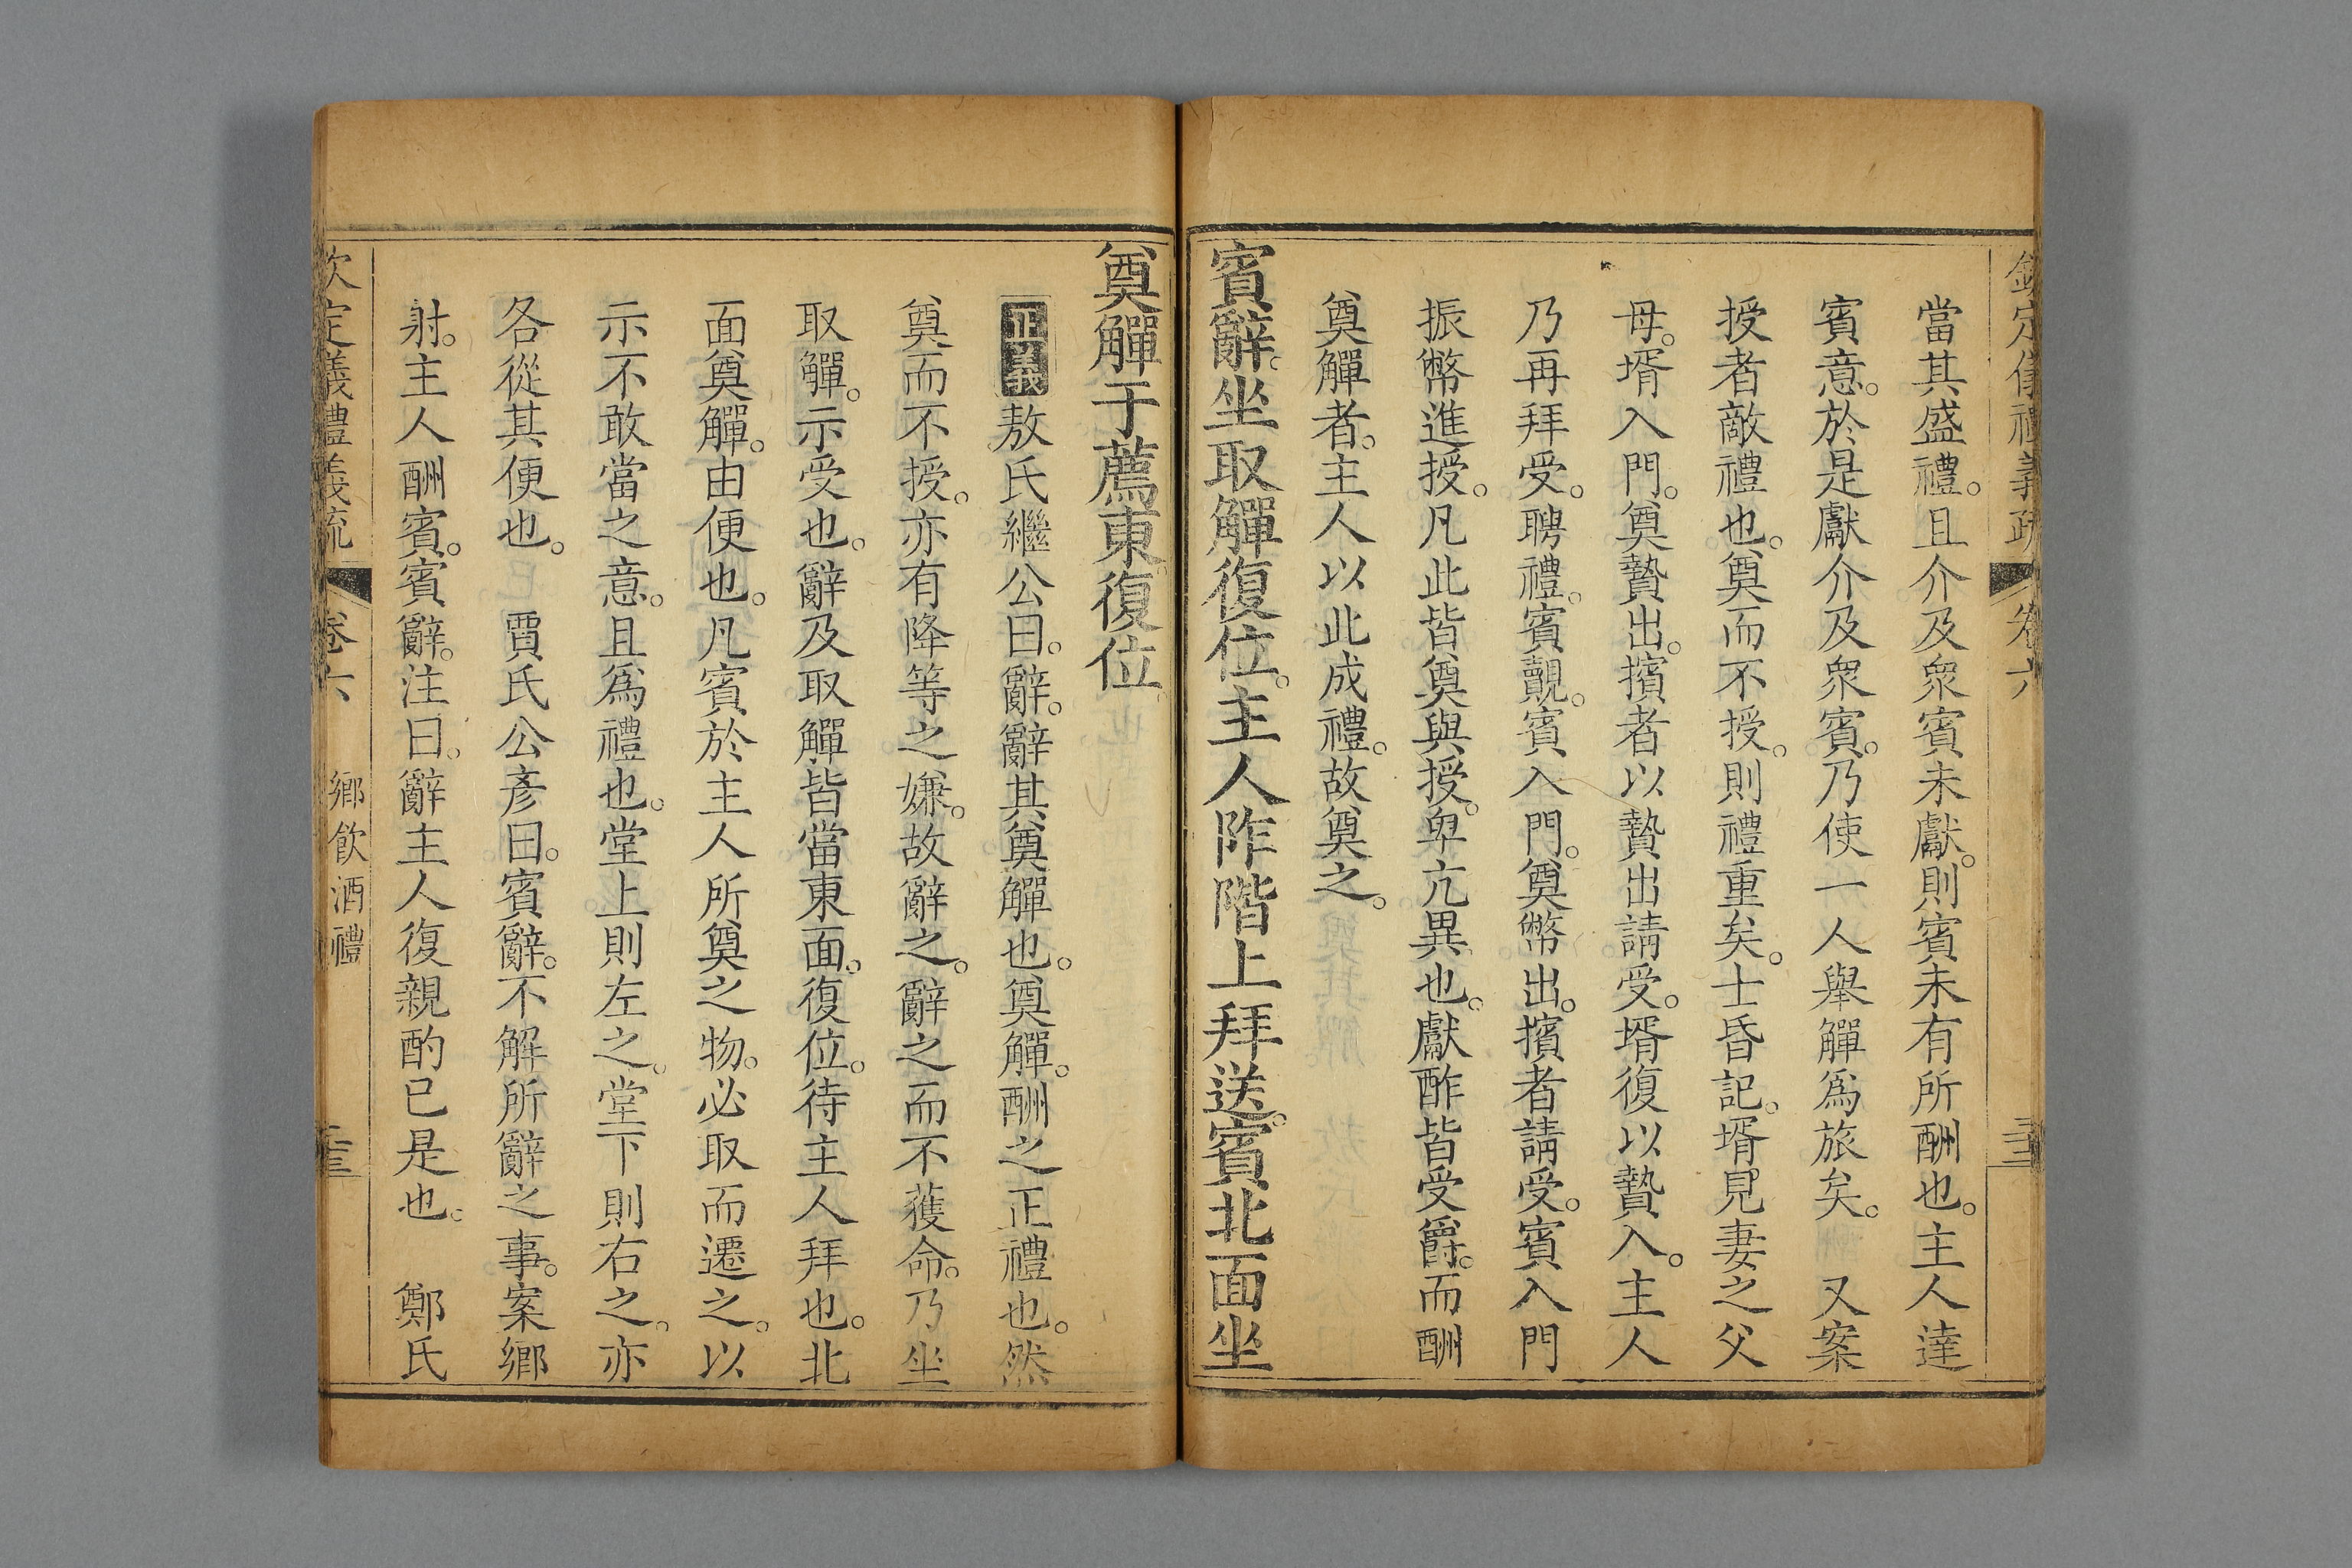 欽定儀禮義疏 卷六
當其盛禮。且介及衆賓未獻。則賓未有所酬也。主人達
賓意。於是獻介及衆賓。乃使一人舉觶爲旅矣。 又案
授者敵禮也。奠而不授。則禮重矣。士昏記。壻見妻之父
母。壻入門。奠贄出。擯者以贄出請受。壻復以贄入。主人
乃再拜受。聘禮。賓覿。賓入門。奠幣出。擯者請受。賓入門
振幣進授。凡此皆奠與授。卑亢異也。獻酢皆受爵。而酬
奠觶者。主人以此成禮。故奠之。
賓辭。坐取觶復位。主人阼階上拜送。賓北面坐
奠觶于薦東復位
正義敖氏繼公曰。辭。辭其奠觶也。奠觶。酬之正禮也。然
奠而不授。亦有降等之嫌。故辭之。辭之而不獲命。乃坐
取觶。示受也。辭及取觶皆當東面。復位。待主人拜也。北
面奠觶。由便也。凡賓於主人所奠之物。必取而遷之。以
示不敢當之意。且爲禮也。堂上則左之。堂下則右之。亦
各從其便也。 賈氏公彥曰。賓辭。不解所辭之事。案鄉
射。主人酬賓。賓辭。注曰。辭主人復親酌已是也。 鄭氏
欽定儀禮義疏 卷六 鄉飲酒禮